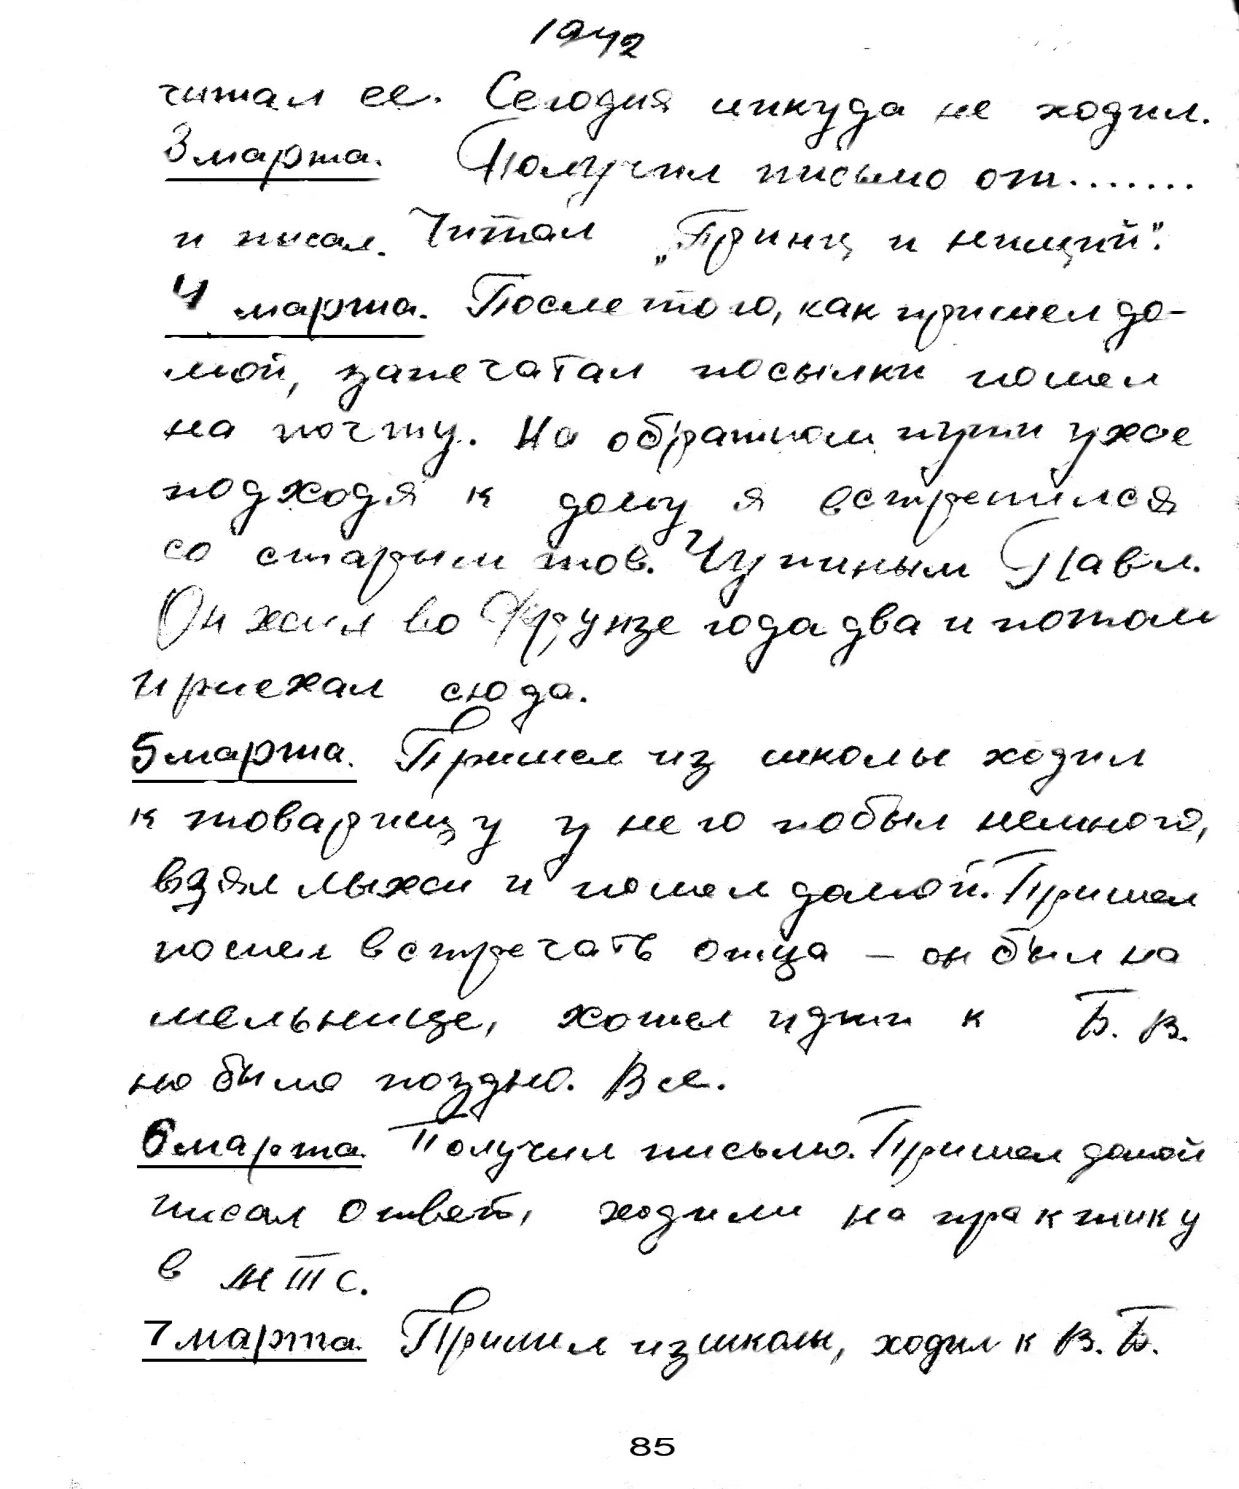 1942
читал ее. Сегодня никуда не ходил.
3 марта. Получил письмо от.......
и писал. Читал „Принц и нищий".
4 марта. После того, как пришел до-
мой, запечатал посылки пошел
на почту. На обратном пути уже
подходя к дому я встретился
со старым тов. Чупиным Павл.
Он жил во Фрунзе года два и потом
приехал сюда.
5 марта. Пришел из школы ходил
к товарищу у него побыл немного,
взял лыжи и пошел домой. Пришел
пошел встречать отца – он был на
мельнице, хотел идти к Б. В.
но было поздно. Все.
6 марта Получил письмо. Пришел домой
писал ответ, ходили на практику
в МТС.
7 марта. Пришел из школы, ходил к В. Б.
85